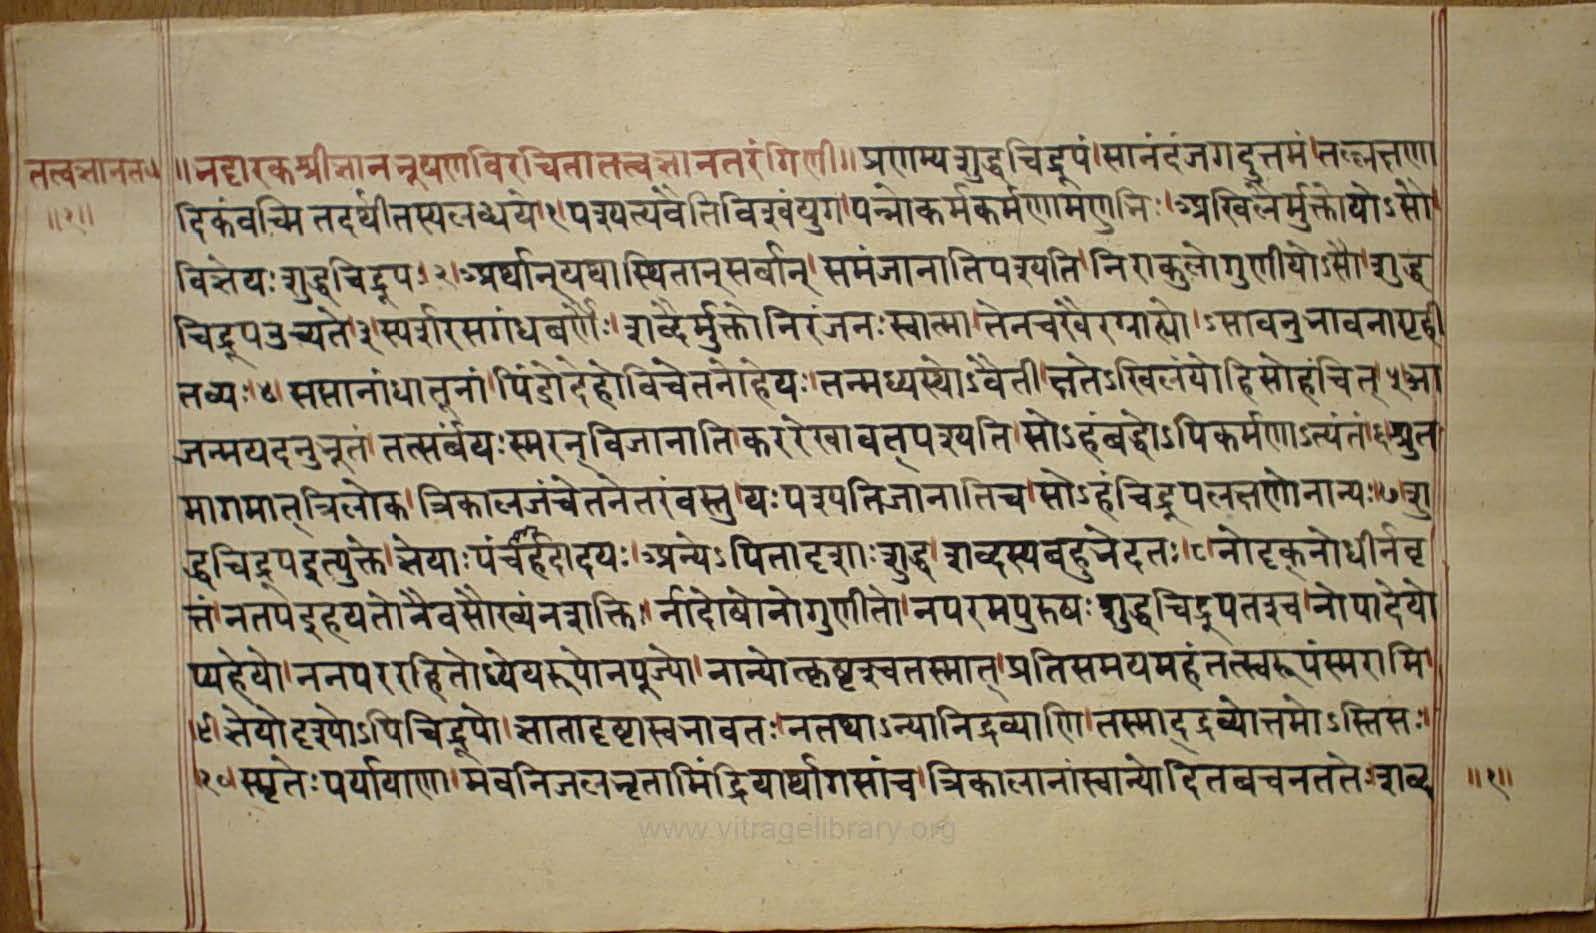 तत्वज्ञानत०
॥१॥
॥भट्टारकश्रीज्ञानभूषणविरचितातत्त्वज्ञानतरंगिणी॥प्रणम्यशुद्धचिद्रूपं।सानंदंजगदुत्तमं।तल्लक्षणा
दिकंवच्मितदर्थीतस्यलब्धये।१।पश्यत्यवैतिविश्वंयुगपन्नोकर्मकर्मणामणुभिः।अखिलैर्मुक्तोयोऽसौ।
विज्ञेयःशुद्धचिद्रूपः।२।अर्थान्यथास्थितान्सर्वान्।समंजानातिपश्यति।निराकुलोगुणीयोऽसौ।शुद्ध
चिद्रूपउच्यते।३।स्पर्शरसगंधवर्णैः।शब्दैर्मुक्तोनिरंजनःस्वात्मा।तेनचखैरग्राह्यो।ऽसावनुभावनागृही
तव्यः।४।सप्तानांधातूनां।पिंडोदेहोविचेतनोहेयः।तन्मध्यस्थोऽवैती।क्षतेऽखिलंयोहिसोहंचित्।५।आ
जन्मयदनुभूतं।तत्सर्वंयःस्मरन्विजानाति।कररेखावत्पश्यति।सोऽहंबद्धोऽपिकर्मणाऽत्यंतं।६।श्रुत
मागमात्त्रिलोक।त्रिकालजंचेतनेतरंवस्तु।यःपश्यतिजानातिच।सोऽहंचिद्रूपलक्षणोनान्यः।७।शु
द्धचिद्रूपइत्युक्ते।ज्ञेयाःपंचार्हदादयः।अन्येऽपितादृशाःशुद्ध।शब्दस्यबहुभेदतः।८।नोदृक्नोधीर्नवृ
त्तं।नतपइहयतोनैवसौख्यंनशक्ति।र्नादोषोनोगुणीतो।नपरमपुरुषःशुद्धचिद्रूपतश्च।नोपादेयो
प्यहेयो।ननपररहितोध्येयरूपोनपूज्यो।नान्योत्कृष्टश्चतस्मात्।प्रतिसमयमहंतत्स्वरूपंस्मरामि
।९।ज्ञेयोदृश्योऽपिचिद्रूपो।ज्ञातादृष्टास्वभावतः।नतथाऽन्यानिद्रव्याणि।तस्माद्द्रव्योत्तमोऽस्तिसः।
।१०।स्मृतेःपर्यायाणा।मवनिजलभृतामिंद्रियार्थागसांच।त्रिकालानांस्वान्योदितवचनततेः।शब्द
॥१॥
www.vitragelibrary.org